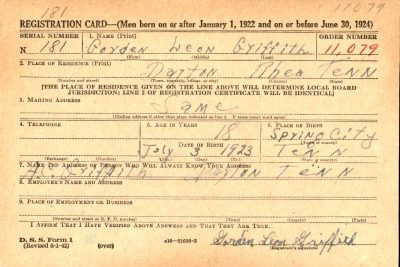 181
11079
REGISTRATION CARD—(Men born on or after January 1, 1922 and on or before June 30, 1924)
SERIAL NUMBER
1. NAME (Print)
ORDER NUMBER
N 181
Gorden Leon Griffith
11,079
(First) (Middle) (Last)
2. PLACE OF RESIDENCE (Print)
Dayton Rhea Tenn
(Number and street) (Town, township, village, or city) (County) (State)
[THE PLACE OF RESIDENCE GIVEN ON THE LINE ABOVE WILL DETERMINE LOCAL BOARD
JURISDICTION; LINE 2 OF REGISTRATION CERTIFICATE WILL BE IDENTICAL]
3. MAILING ADDRESS
Same
(Mailing address if other than place indicated on line 2. If same insert word same)
4. TELEPHONE
5. AGE IN YEARS
18
6. PLACE OF BIRTH
Spring City
DATE OF BIRTH
(Town or county)
July 3 1923
Tenn
(Exchange) (Number) (Mo.) (Day) (Yr.) (State or country)
7. NAME AND ADDRESS OF PERSON WHO WILL ALWAYS KNOW YOUR ADDRESS
Griffith Dayton Tenn
8. EMPLOYER'S NAME AND ADDRESS
9. PLACE OF EMPLOYMENT OR BUSINESS
(Number and street or R. F. D. number) (Town) (County) (State)
I AFFIRM THAT I HAVE VERIFIED ABOVE ANSWERS AND THAT THEY ARE TRUE.
D. S. S. Form 1
(Revised 6-1-42) (over) c16—21630-2
Gorden Leon Griffith
(Registrant's signature)